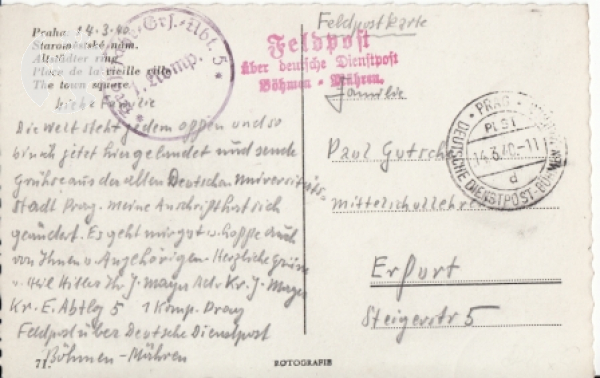 Praha 14.3.40
Staroměstské nám.
Altstädter ring
Place de la vieille ville
The town square
Ers.-Abt. 5 *
1. Komp.
Feldpost
über deutsche Dienstpost
Böhmen - Mähren.
Feldpostkarte
Familie
Paul Gutsche
Mittelschullehrer
Erfurt
Steigerstr 5
PRAG
DEUTSCHE DIENSTPOST BÖHMEN
14.3.40-11
d
Liebe Familie
Die Welt steht jedem offen und so
bin ich jetzt hier gelandet und sende
Grüsse aus der alten Deutschen Universitäts-
stadt Prag. Meine Anschrift hat sich
geändert. Es geht mir gut u. hoffe auch
von Ihnen u. Angehörigen. Herzliche Grüsse
u. Heil Hitler Ihr J. Mayer Adr. Kr. J. Mayer
Kr. E. Abtlg 5 1 Komp. Prag
Feldpost über Deutsche Dienstpost
Böhmen - Mähren
71.
FOTOGRAFIE